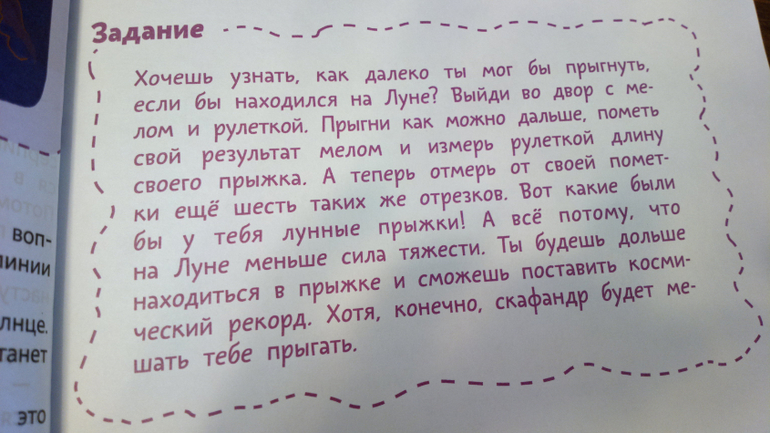 Задание
Хочешь узнать, как далеко ты мог бы прыгнуть,
если бы находился на Луне? Выйди во двор с ме-
лом и рулеткой. Прыгни как можно дальше, пометь
свой результат мелом и измерь рулеткой длину
своего прыжка. А теперь отмерь от своей помет-
ки ещё шесть таких же отрезков. Вот какие были
бы у тебя лунные прыжки! А всё потому, что
на Луне меньше сила тяжести. Ты будешь дольше
находиться в прыжке и сможешь поставить косми-
ческий рекорд. Хотя, конечно, скафандр будет ме-
шать тебе прыгать.
воп-
линии
лнце.
танет
это